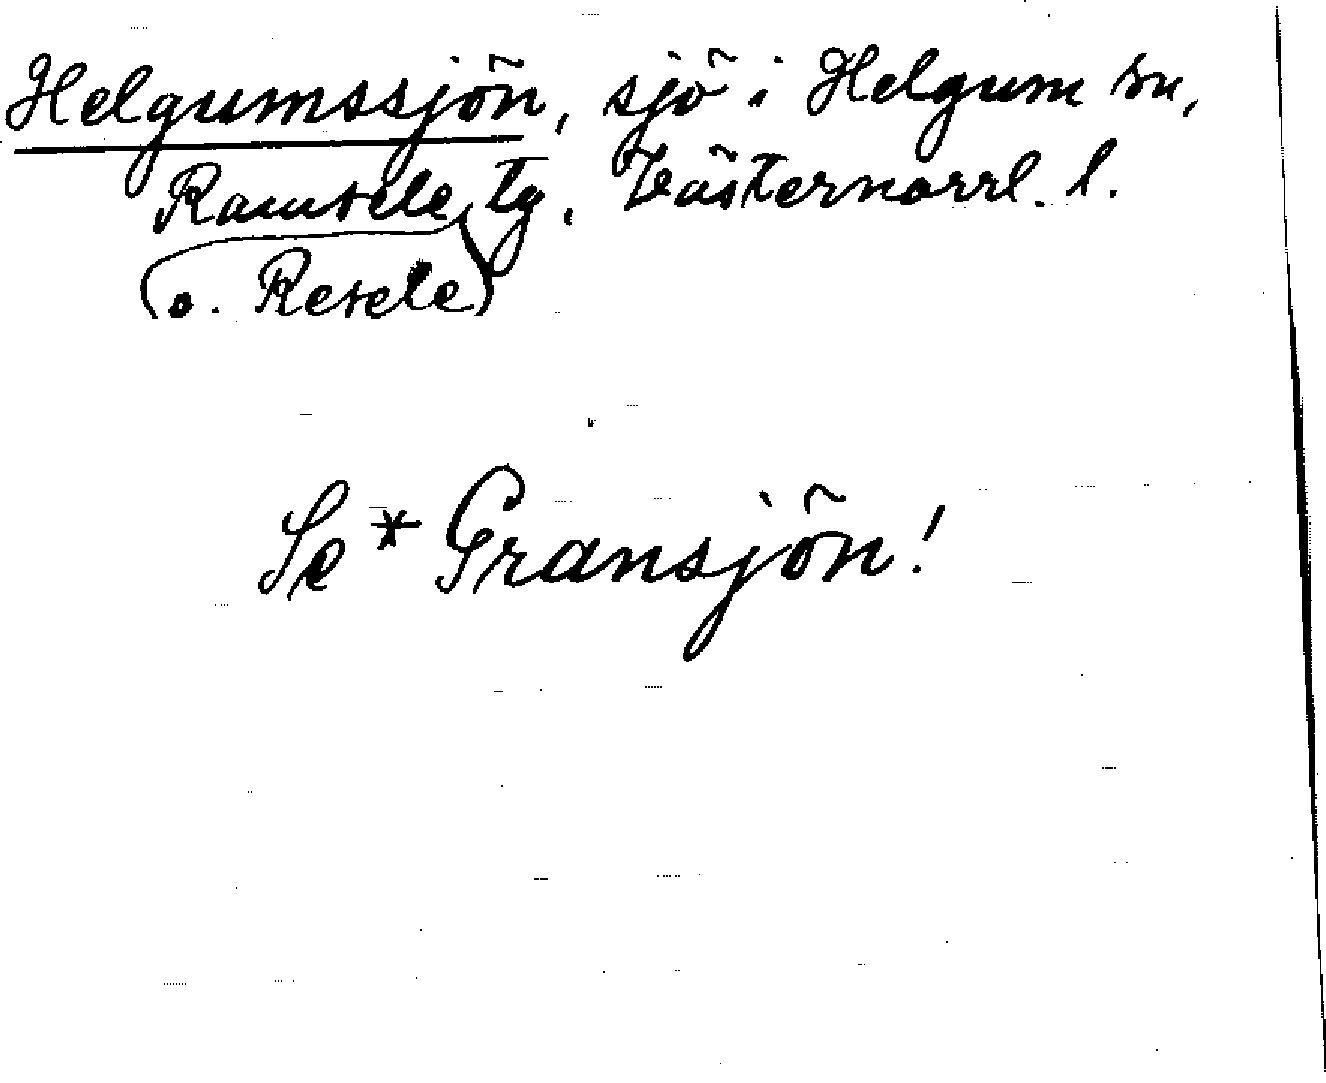 Helgumssjön, sjö i Helgum sn,
Ramsele tg, Västernorrl. l.
(o. Resele)
Se * Gransjön!